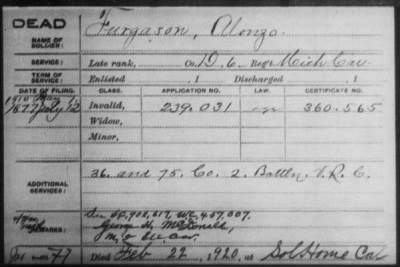 DEAD
NAME OF SOLDIER:
Furgason, Alonzo.
SERVICE:
Late rank, Co. D, 6, Reg't Mich Cav
TERM OF SERVICE:
Enlisted , 1 Discharged , 1
DATE OF FILING. CLASS. APPLICATION NO. LAW. CERTIFICATE NO.
1877 July 12 Invalid, 239.031 360.565
Widow,
Minor,
ADDITIONAL SERVICES:
36. and 75. Co. 2. Battln V.R.C.
REMARKS:
George H. McDonald,
Died Feb 22, 1920, at Sol Home Cal